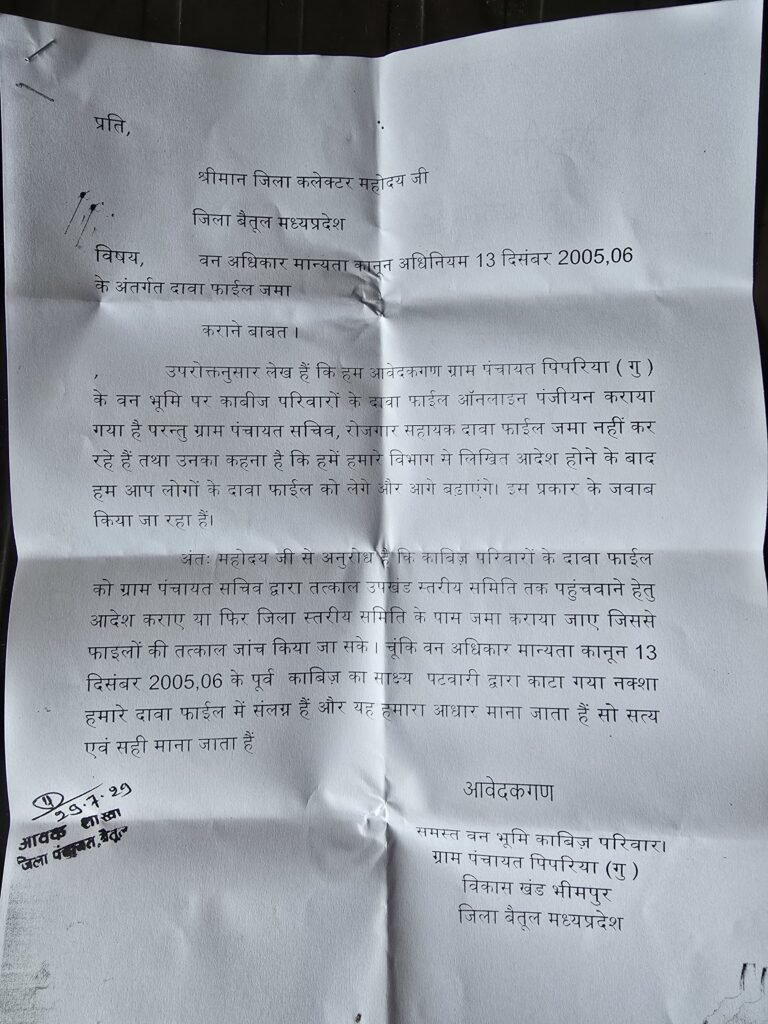 प्रति,
श्रीमान जिला कलेक्टर महोदय जी
जिला बैतूल मध्यप्रदेश
विषय, वन अधिकार मान्यता कानून अधिनियम 13 दिसंबर 2005,06
के अंतर्गत दावा फाईल जमा
कराने बाबत ।
, उपरोक्तनुसार लेख हैं कि हम आवेदकगण ग्राम पंचायत पिपरिया ( गु )
के वन भूमि पर काबीज परिवारों के दावा फाईल ऑनलाइन पंजीयन कराया
गया है परन्तु ग्राम पंचायत सचिव, रोजगार सहायक दावा फाईल जमा नहीं कर
रहे हैं तथा उनका कहना है कि हमें हमारे विभाग से लिखित आदेश होने के बाद
हम आप लोगों के दावा फाईल को लेगे और आगे बडाएंगे। इस प्रकार के जवाब
किया जा रहा हैं।
अंतः महोदय जी से अनुरोध है कि काबिज़ परिवारों के दावा फाईल
को ग्राम पंचायत सचिव द्वारा तत्काल उपखंड स्तरीय समिति तक पहुंचवाने हेतु
आदेश कराए या फिर जिला स्तरीय समिति के पास जमा कराया जाए जिससे
फाइलों की तत्काल जांच किया जा सके । चूंकि वन अधिकार मान्यता कानून 13
दिसंबर 2005,06 के पूर्व काबिज़ का साक्ष्य पटवारी द्वारा काटा गया नक्शा
हमारे दावा फाईल में संलग्न हैं और यह हमारा आधार माना जाता हैं सो सत्य
एवं सही माना जाता हैं
आवेदकगण
समस्त वन भूमि काबिज़ परिवार।
ग्राम पंचायत पिपरिया (गु )
विकास खंड भीमपुर
जिला बैतूल मध्यप्रदेश
29.7.29
आवक शाखा
जिला पंचायत, बैतूल